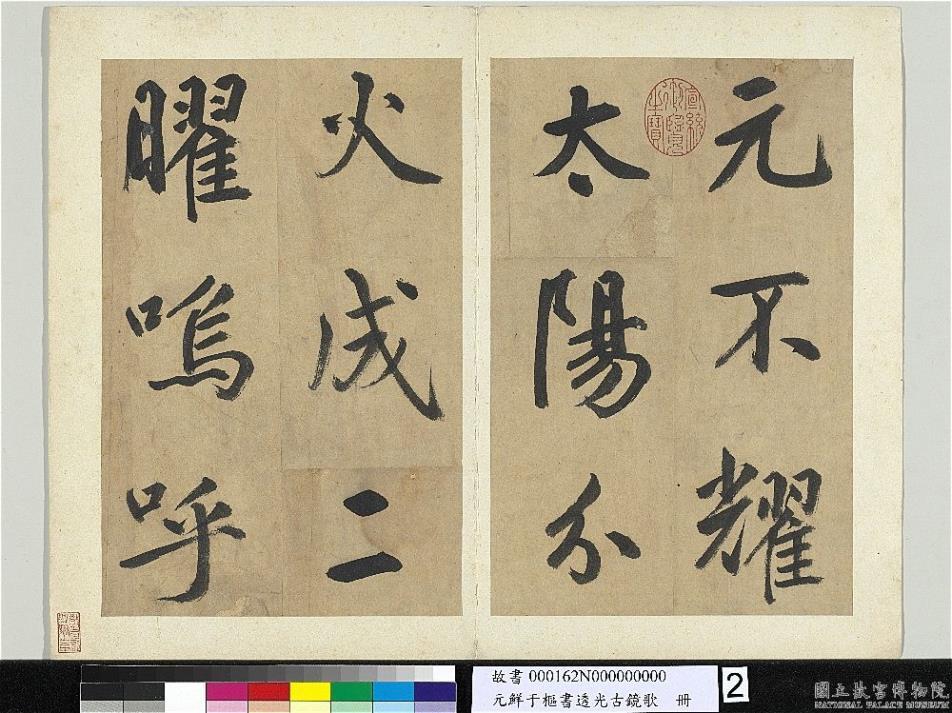 元不耀
太陽分
火成二
曜嗚呼
宣統御覽之寶
故書 000162N000000000
元鮮于樞書透光古鏡歌 冊
2
國立故宮博物院
NATIONAL PALACE MUSEUM